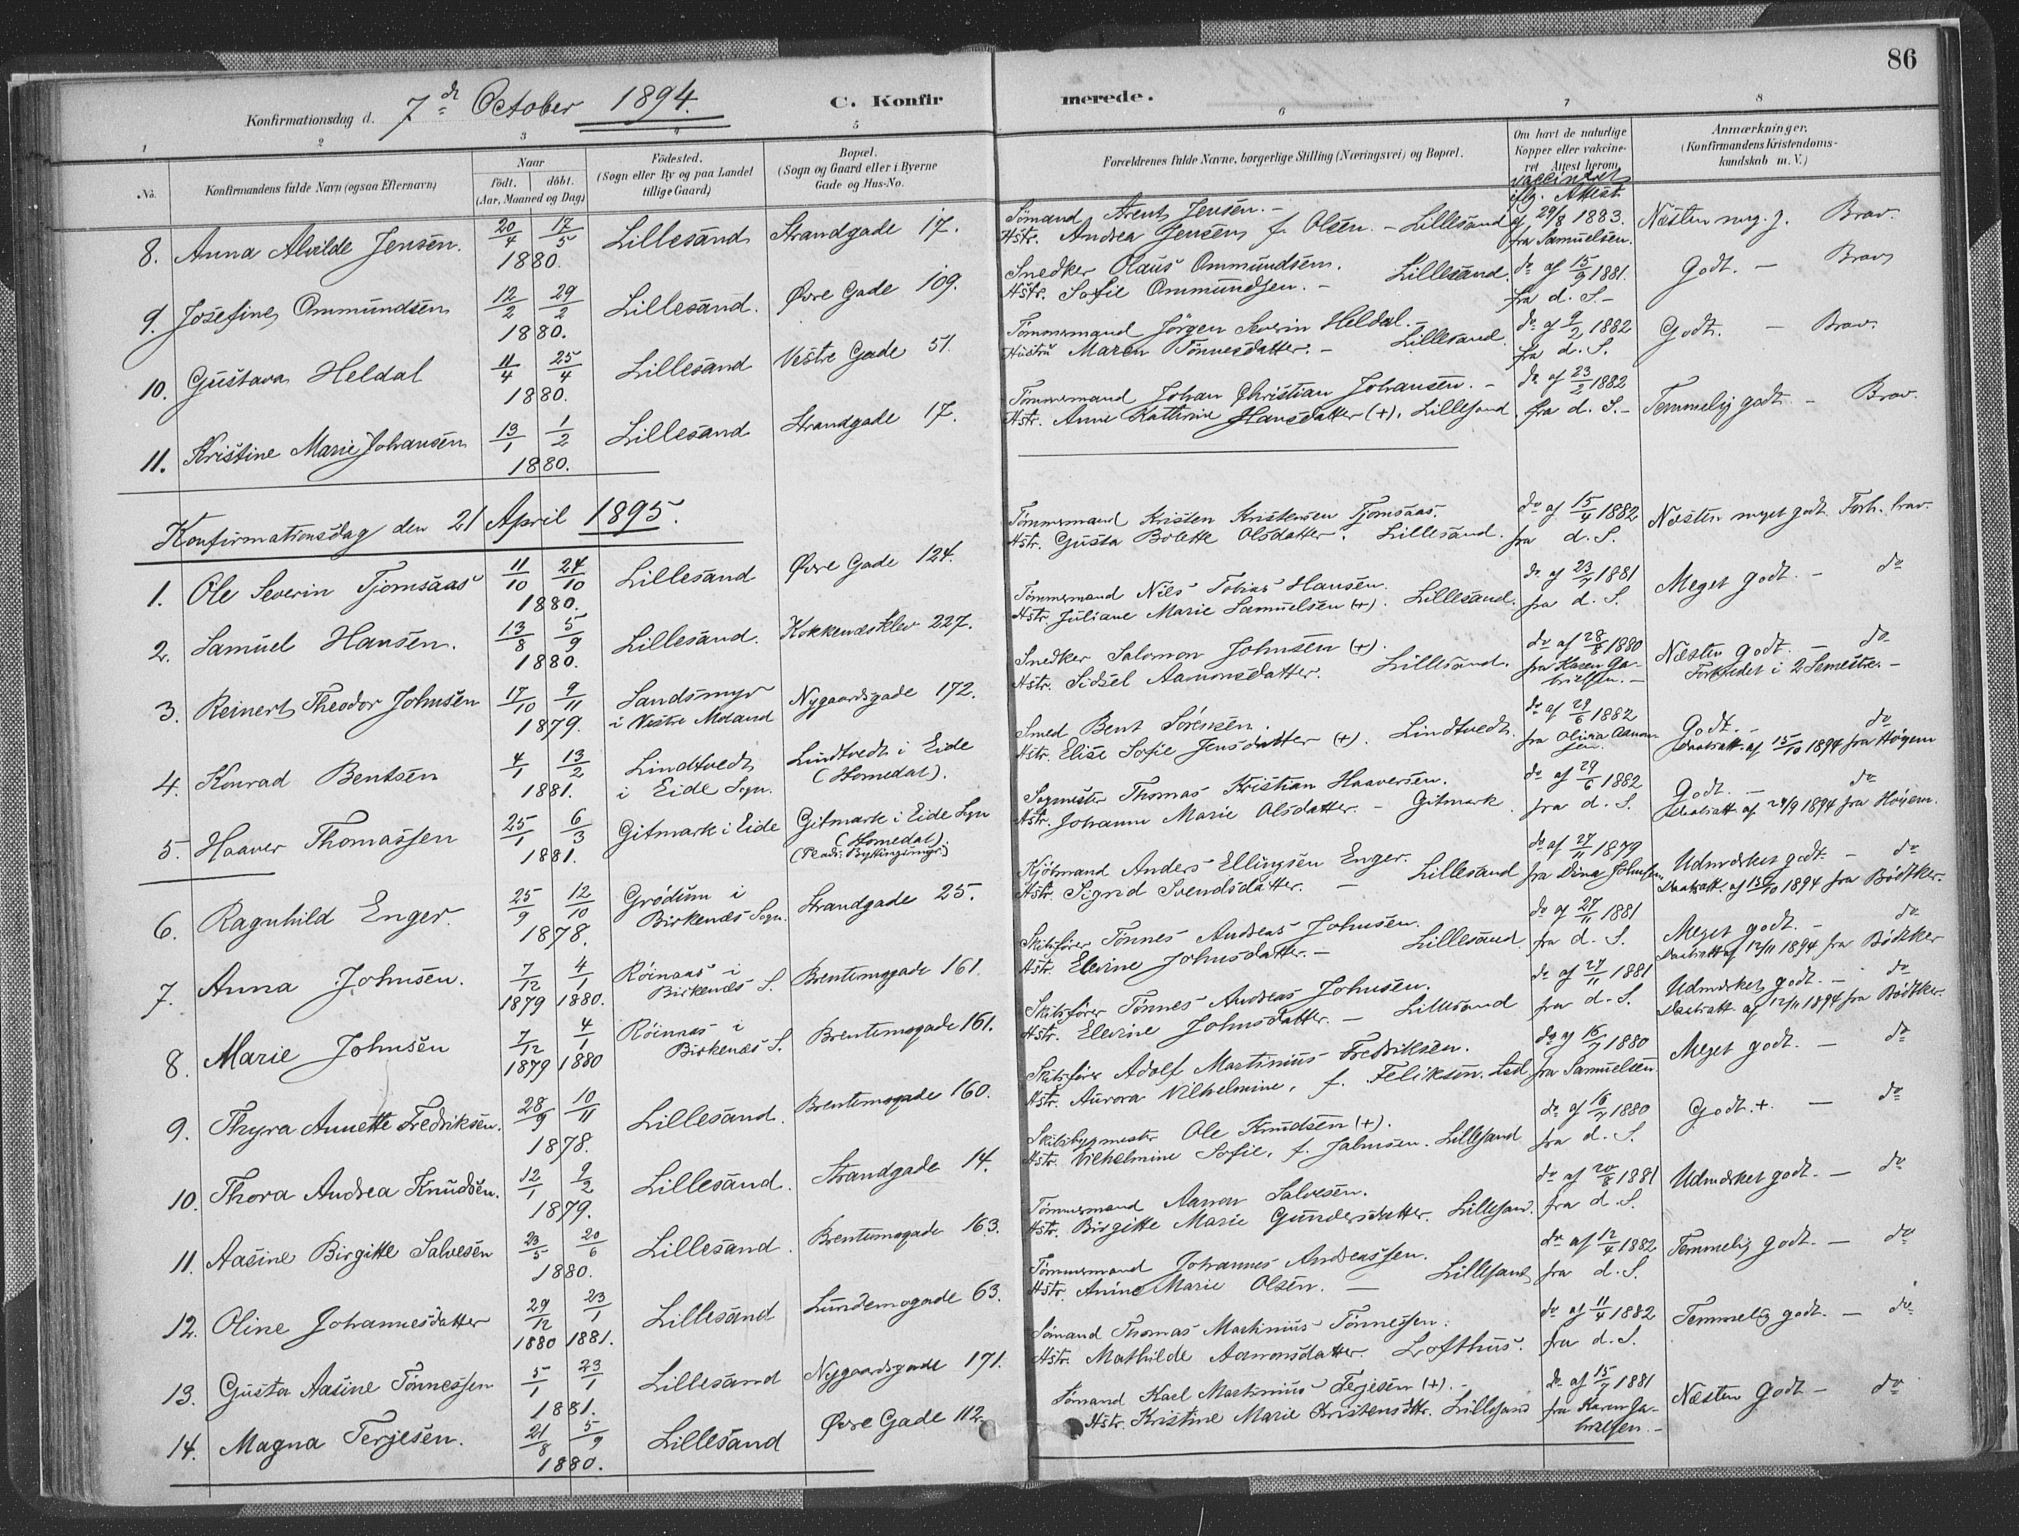 86
Konfirmationsdag d. 7de October 1894. C. Konfirmerede.
1 2 3 4 5 6 7 8
No.
Konfirmandens fulde Navn (ogsaa Efternavn)
Naar
født. døbt.
(Aar, Maaned og Dag)
Fødested.
(Sogn eller By og paa Landet
tillige Gaard)
Bopæl.
(Sogn og Gaard eller i Byerne
Gade og Hus-No.
Forældrenes fulde Navne, borgerlige Stilling (Næringsvei) og Bopæl.
Om havt de naturlige
Kopper eller vakcine-
ret. Attest herom.
Anmærkninger.
(Konfirmandens Kristendoms-
kundskab m. V.)
8. Anna Alvilde Jensen. 20/4 17/5 1880. Lillesand Strandgade 17.
Sømand Arent Jensen. -
Hstr. Andrea Jensen f. Olsen. - Lillesand
vaccineret
iflg. Attest
af 29/8 1883.
fra Samuelsen.
Næsten meg. g. Brav.
9. Josefine Ommundsen 12/2 29/2 1880. Lillesand. Øvre Gade 109.
Snedker Olaus Ommundsen.
Hstr. Sofie Ommundsen. - Lillesand.
do af 15/9 1881.
fra d. S. -
Godt. - Brav
10. Gustava Heldal 11/4 25/4 1880. Lillesand Vestre Gade 51.
Tømmermand Jörgen Severin Heldal. -
Hustru Maren Tönnesdatter. - Lillesand.
do af 9/2 1882
fra d. S.
Godt. - Brav.
11. Kristine Marie Johansen 13/1 1/2 1880. Lillesand Strandgade 17.
Tømmermand Johan Christian Johansen. -
Hstr. Anne Kathrine Hansdatter (+). Lillesand.
do af 23/2 1882
fra d. S. -
Temmelig godt - Brav.
Konfirmationsdag den 21 April 1895.
1. Ole Severin Tjomsaas 11/10 24/10 1880. Lillesand Øvre Gade 124.
Tømmermand Kristen Kristensen Tjomsaas.
Hstr. Gusta Bolette Olsdatter. Lillesand.
do af 15/4 1882
fra d. S.
Næsten meget godt. Forh. brav.
2. Samuel Hansen. 13/8 5/9 1880. Lillesand. Kokkenæsklev 227.
Tømmermand Nils Tobias Hansen.
Hstr. Juliane Marie Samuelsen (+). Lillesand.
do af 23/7 1881
fra d. S.
Meget godt. - do
3. Reinert Theodor Johnsen 17/10 9/11 1879. Sandsmyr i Vestre Moland Nygaardsgade 172.
Snedker Salomon Johnsen (+).
Hstr. Sidsel Aanonsdatter. Lillesand.
do af 28/8 1880
fra Karen Ga-
brielsen. -
Næsten godt. - do
Forberedet i 2 Semestre. -
4. Konrad Bentsen 4/1 13/2 1881. Lindtvedt i Eide Sogn. Lindtvedt i Eide (Homedal).
Smed Bent Sörensen.
Hstr. Elise Sofie Jensdatter (+). Lindtvedt.
do af 29/6 1882
fra Olivia Aanon-
sen.
Godt. - do
Daabsatt. af 15/10 1894 fra Høyem
5. Haaver Thomassen 25/1 6/3 1881. Gitmark i Eide Gitmark i Eide Sogn
(Homedal).
Sagmester Thomas Kristian Haaversen.
Hstr. Johanne Marie Olsdatter. - Gitmark.
do af 29/6 1882
fra d. S.
Godt. - do
Daabsatt. af 24/9 1894 fra Høyem.
6. Ragnhild Enger. 25/9 12/10 1878. Grödum i Birkenæs Sogn. Strandgade 25.
Kjöbmand Anders Ellingsen Enger.
Hstr. Sigrid Svendsdatter. - Lillesand
do af 27/11 1879
fra Dina Johnsen
Udmærket godt. - do
Daabsatt. af 15/10 1894 fra Bödtker.
7. Anna Johnsen. 7/12 4/1 1879 1880. Röinaas i Birkenæs S. Brentemogade 161.
Skibsfører Tönnes Andreas Johnsen.
Hstr. Elevine Johnsdatter. - Lillesand.
do af 27/11 1881
fra d. S.
Meget godt. - do
Daabsatt. af 12/11 1894 fra Bödtker
8. Marie Johnsen 7/12 4/1 1879 1880 Röinaas i Birkenæs S. Brentemogade 161.
Skibsfører Tönnes Andreas Johnsen.
Hstr. Elevine Johnsdatter. - Lillesand
do af 27/11 1881
fra d. S.
Udmærket godt. - do
Daabsatt. af 12/11 1894 fra Bödtker.
9. Thyra Annette Fredriksen. 28/9 10/11 1878. Lillesand. Brentemogade 160.
Skibsfører Adolf Martinius Fredriksen.
Hstr. Aurora Vilhelmine, f. Feliksen. Lsd.
do af 16/7 1880
fra Samuelsen.
Meget godt. - do
10. Thora Andrea Knudsen. 12/1 9/2 1879. Lillesand. Strandgade 14.
Skibsbygmester Ole Knudsen (+).
Hstr. Vilhelmine Sofie, f. Jahnsen. Lillesand
do af 16/7 1880
fra d. S.
Godt. + - do
11. Aasine Birgitte Salvesen 23/5 20/6 1880. Lillesand. Brentemogade 163.
Tømmermand Aanon Salvesen.
Hstr. Birgitte Marie Gundersdatter. Lillesand.
do af 20/8 1881
fra d. S.
Udmærket godt. - do
12. Oline Johannesdatter 29/12 23/1 1880 1881. Lillesand Lundemogade 63.
Tømmermand Johannes Andreassen.
Hstr. Anine Marie Olsen. - Lillesand
do af 12/4 1882
fra d. S.
Temmelig godt. - do
13. Gusta Aasine Tönnessen 5/1 23/1 1881. Lillesand Nygaardsgade 171.
Sömand Thomas Martinius Tönnessen.
Hstr. Mathilde Aanonsdatter. Lofthus.
do af 11/4 1882
fra d. S.
Temmelig godt. - do
14. Magna Terjesen. 21/8 5/9 1880. Lillesand Øvre Gade 112.
Sømand Karl Martinius Terjesen (+). -
Hstr. Kristine Marie Kristensdtr. Lillesand
do af 15/7 1881
fra Karen Ga-
brielsen. -
Næsten Godt - do